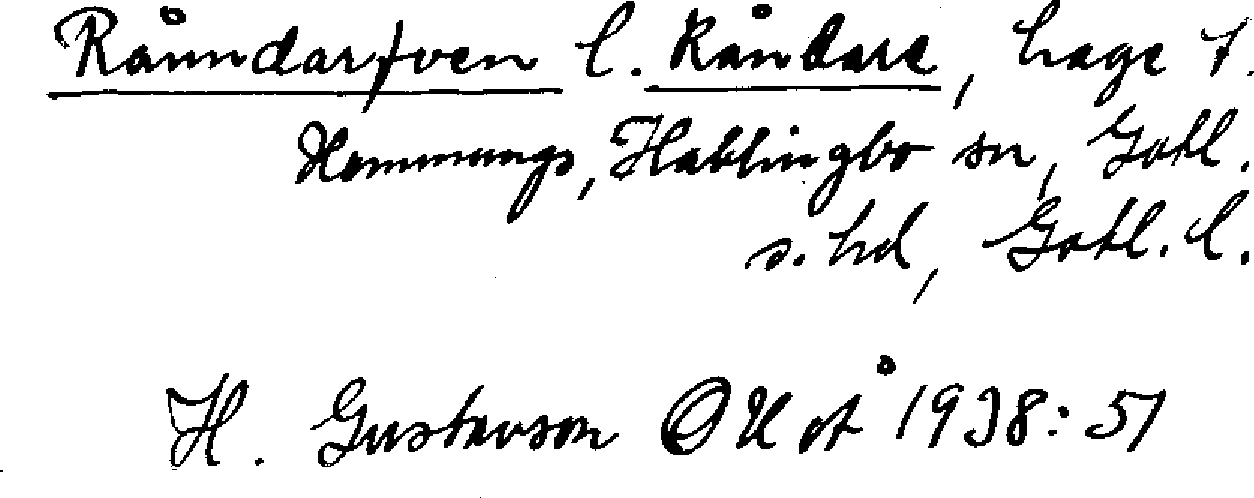 Råmndarfven l. Råndare, hage t.
Hemmungs, Hablingbo sn, Gotl.
s. hd, Gotl. l.
H. Gustavson OUÅ 1938:51